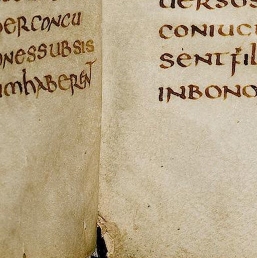 perconcu
onessubsis
imhaberent
versos
coniuci
sentfil
inbono